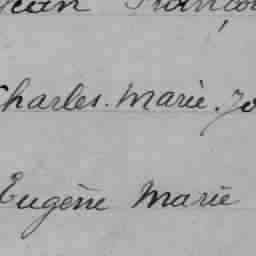 Jean François
Charles. Marie. Jo
Eugène Marie